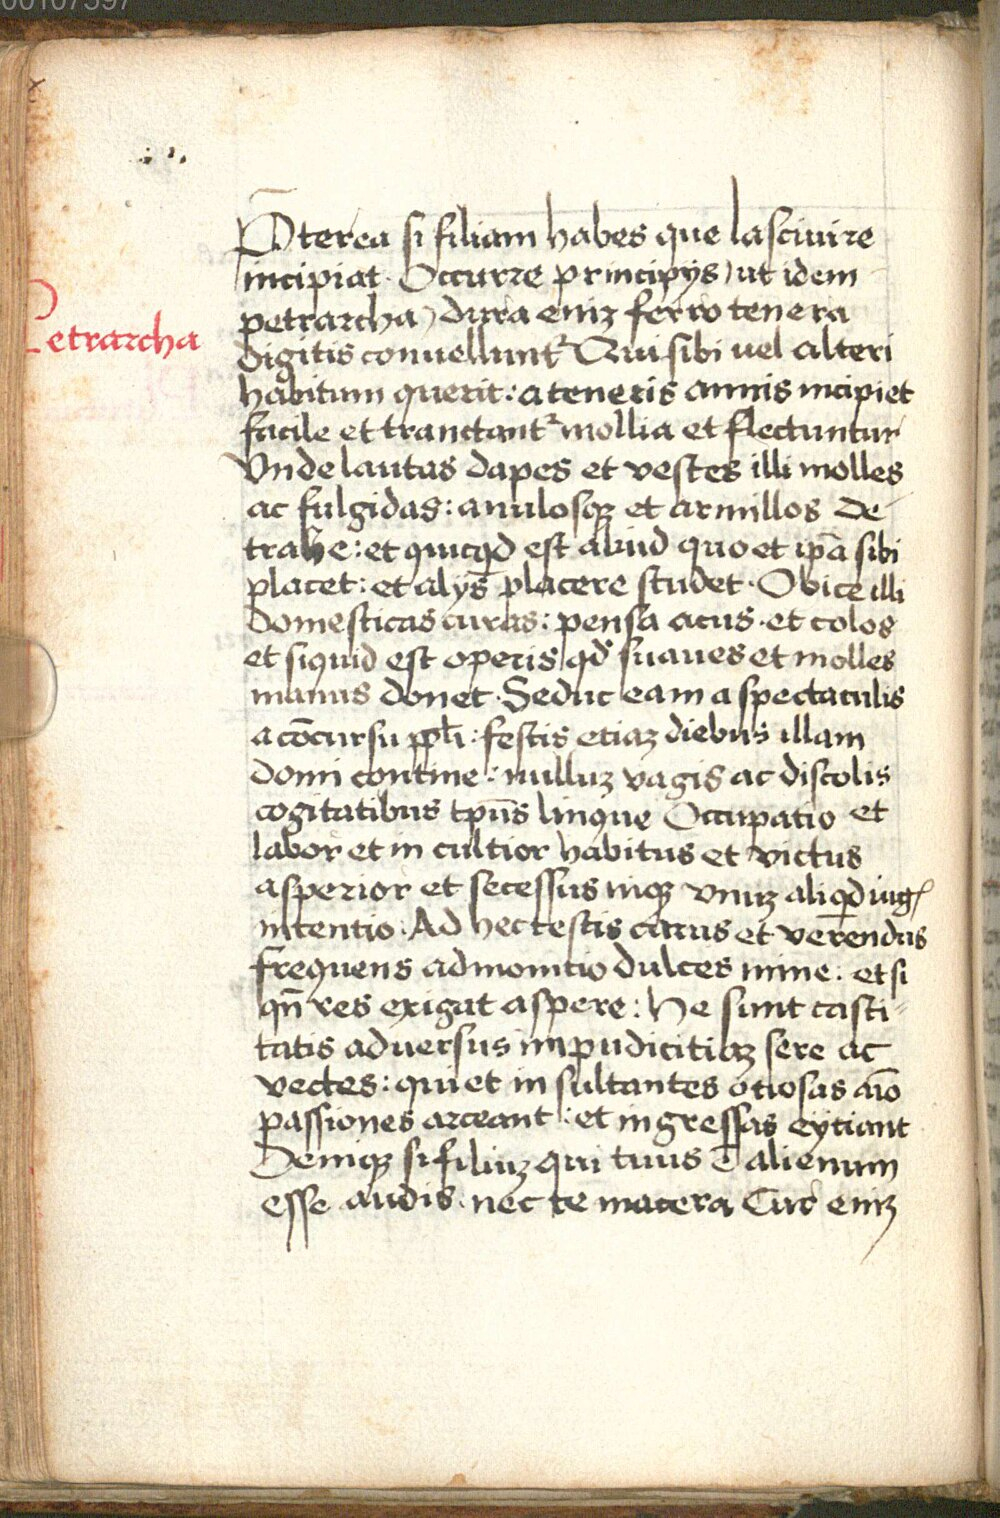 P̄terea si filiam habes que lasciuire
incipiat. Occurre principijs) ut idem
Petrarcha
petrarcha) dura eniꝫ ferro tenera
digitis conuelluntᷣ Qui sibi vel alteri
habitum querit: a teneris annis incipiet
facile et tranctantᷣ mollia et flectuntur
Vnde lautas dapes et vestes illi molles
ac fulgidas: anulosqꝫ et armillos de
trahe: et quicqd est aliud quo et ip̄a sibi
placet: et alijs placere studet. Obice illi
domesticas curas: pensa acus. et colos
et siquid est operis qd̕ suaues et molles
manus donet. Seduc eam a spectaculis
a cōcursu pp̄li: festis etiaꝫ diebus illam
domi contine: nulluꝫ vagis ac discolis
cogitatibus tp̄us linque Occupatio et
labor et in cultior habitus et victus
asperior et secessus inqꝫ vnuꝫ aliqd iug̕
intentio. Ad hec testis carus et verendus
frequens admonitio dulces mine: et si
qn̄ res exigat aspere: He sunt casti
tatis aduersus impudicitiaꝫ sere ac
vectes: qui et in sultantes otiosas aīo
passiones arceant: et ingressas eijciant
Deniqꝫ si filiuꝫ qui tuus ē alienum
esse audis. nec te macera Cur eniꝫ